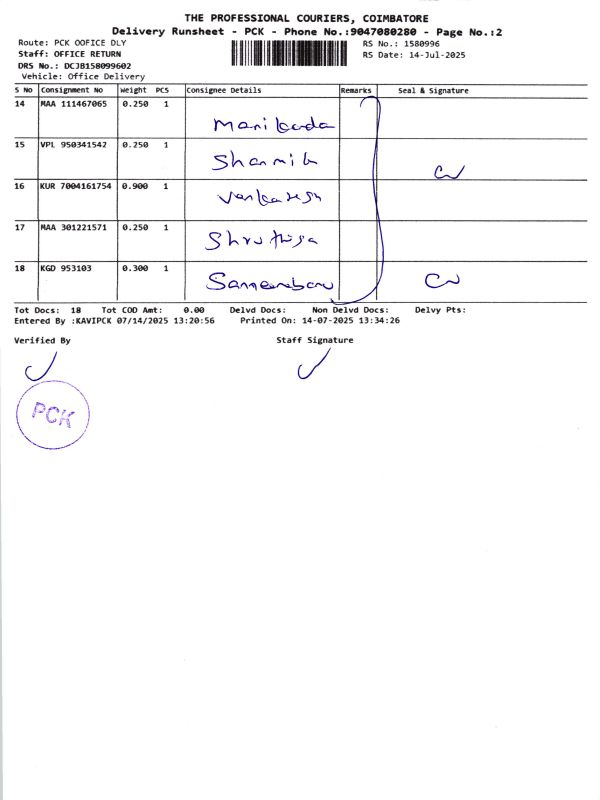 THE PROFESSIONAL COURIERS, COIMBATORE
Delivery Runsheet - PCK - Phone No.:9047080280 - Page No.:2
Route: PCK OOFICE DLY RS No.: 1580996
Staff: OFFICE RETURN RS Date: 14-Jul-2025
DRS No.: DCJB158099602
Vehicle: Office Delivery
S No Consignment No Weight PCS Consignee Details Remarks Seal & Signature
14 MAA 111467065 0.250 1
15 VPL 950341542 0.250 1
16 KUR 7004161754 0.900 1
17 MAA 301221571 0.250 1
18 KGD 953103 0.300 1
Tot Docs: 18 Tot COD Amt: 0.00 Delvd Docs: Non Delvd Docs: Delvy Pts:
Entered By :KAVIPCK 07/14/2025 13:20:56 Printed On: 14-07-2025 13:34:26
Verified By Staff Signature
PCK